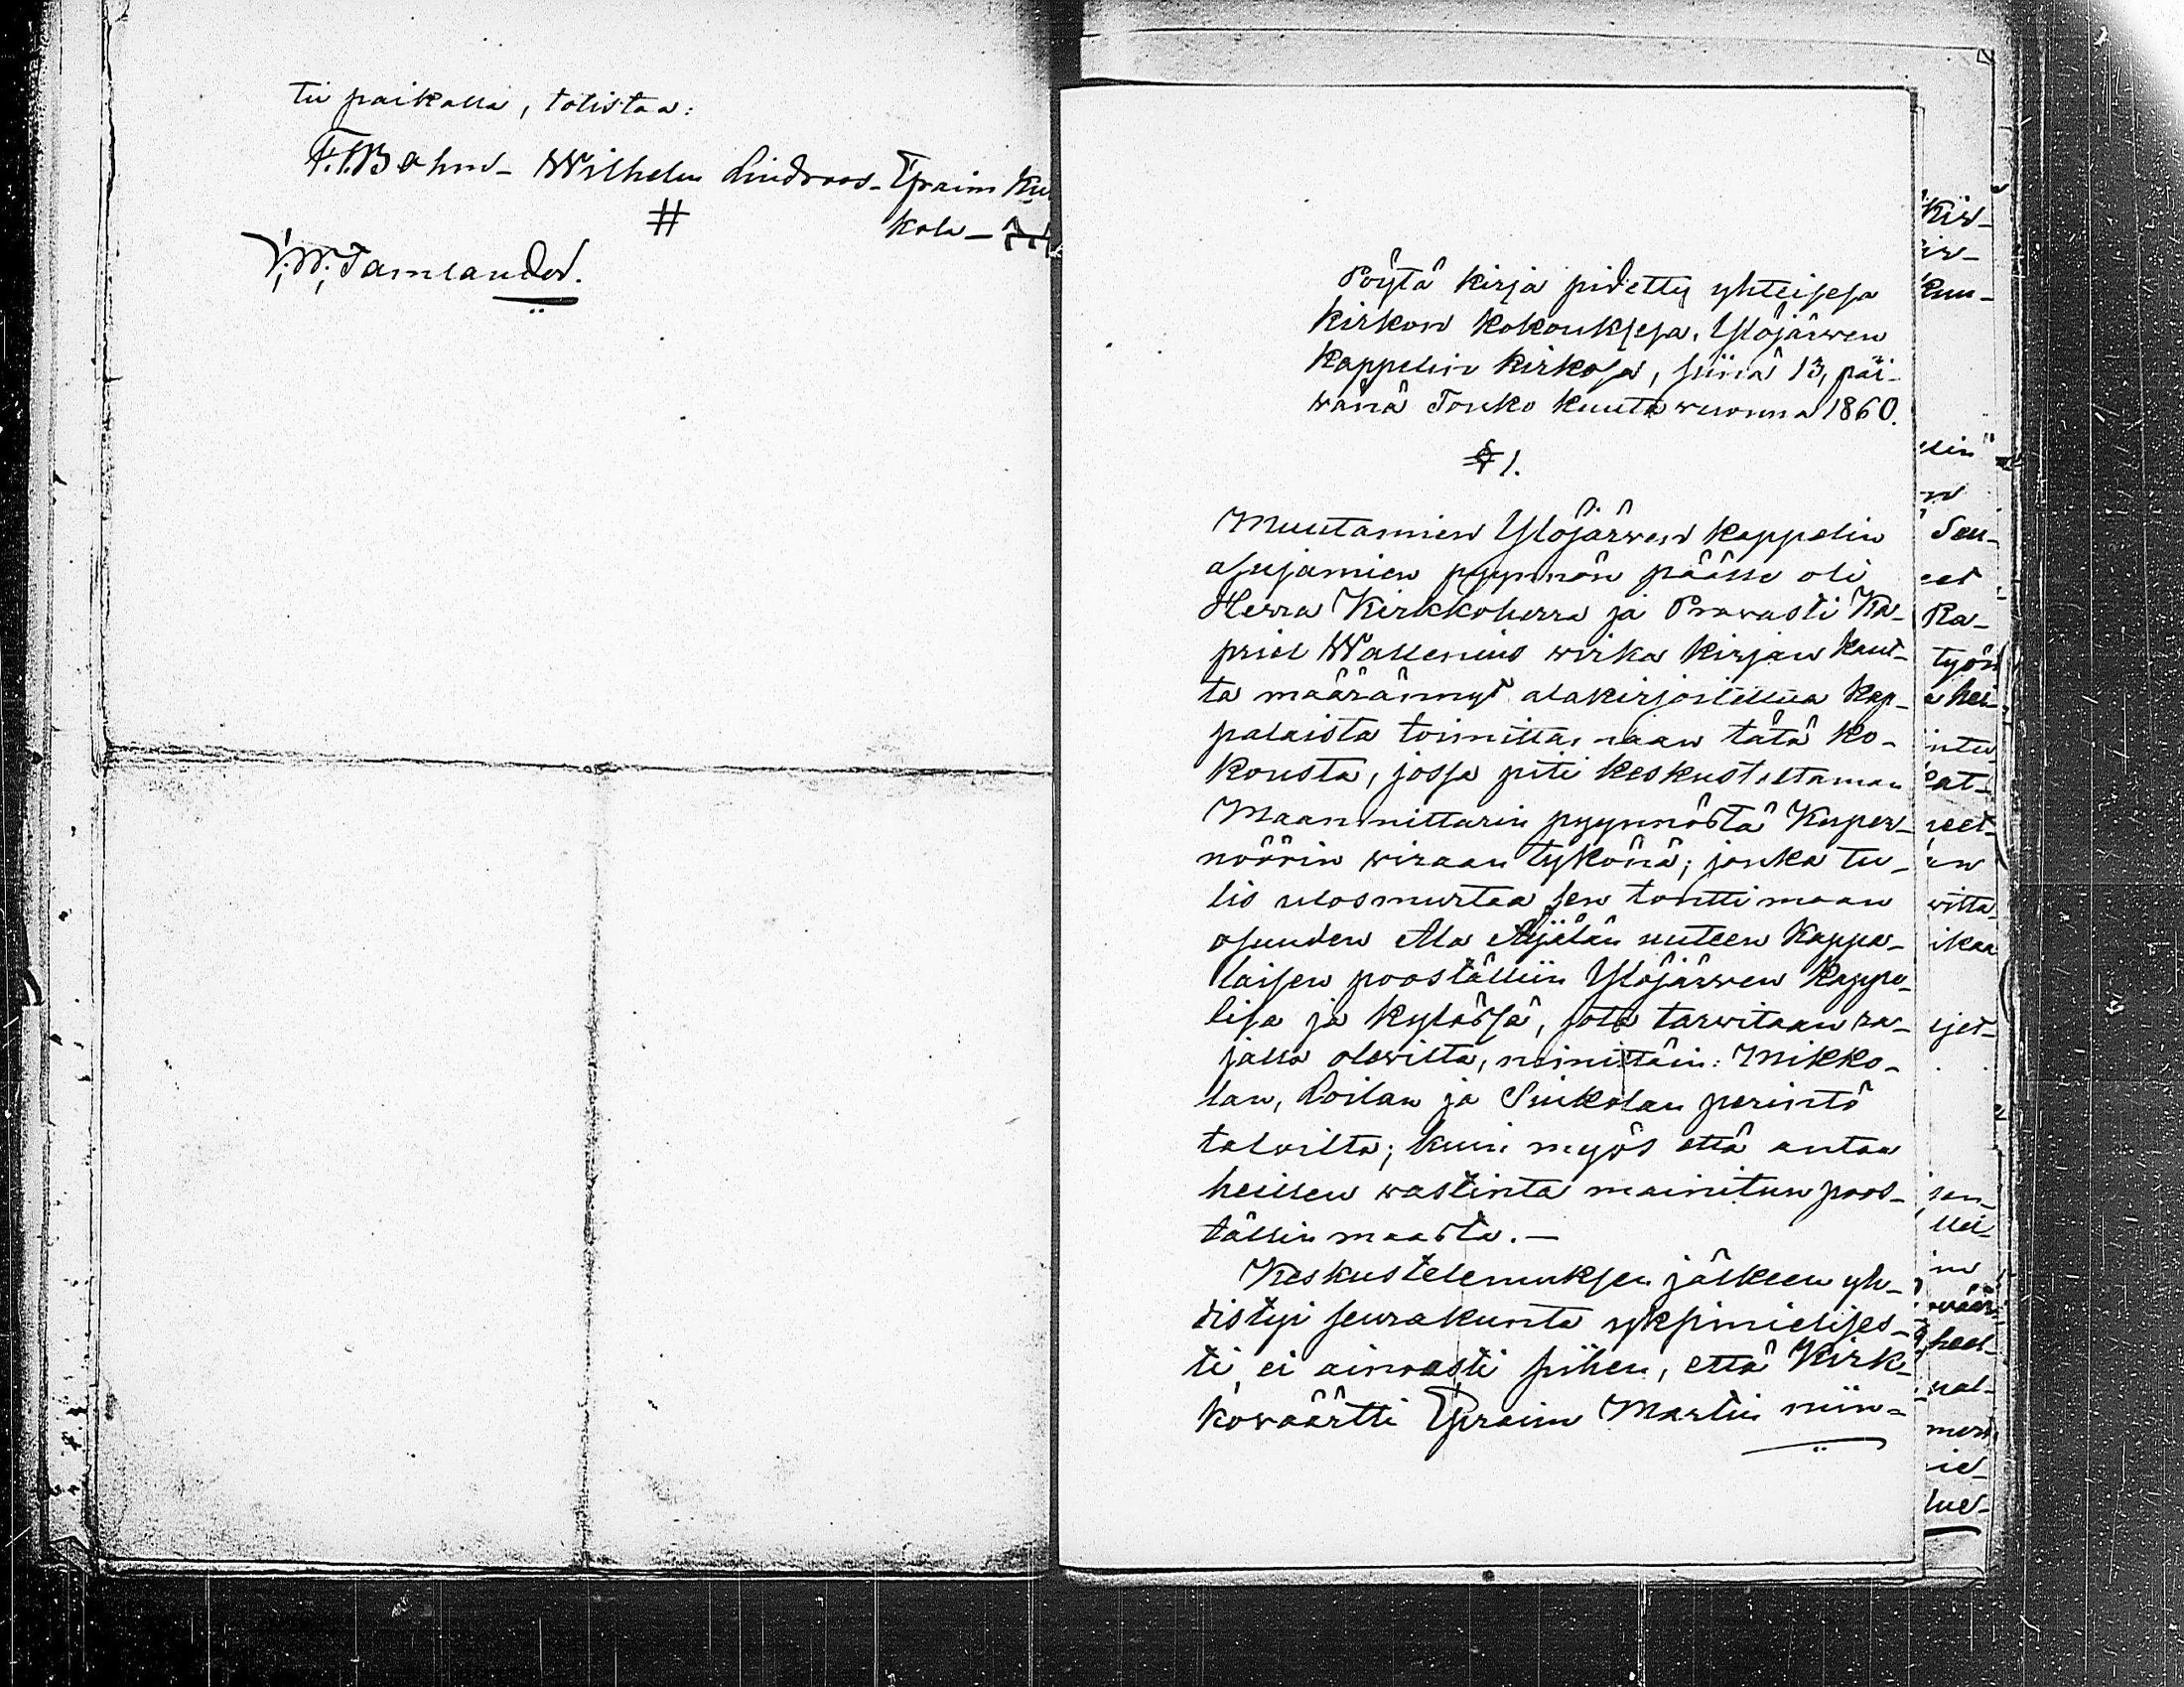 tii paikalla, tolistaa:
F. F. Bohm - Wilhelm Lindroos - Epraim Ku
# kola -
Tamlander.
Pöytä kirja pidetty yhteisesä
kirkon kokouksesa, Ylöjärwen
Kappelin kirkosa, siinä 13, päi-
wänä Touko kuuta wuonna 1860.
§ 1.
Muutamien Ylöjärwen kappelin
asujamien pyynnön päälle oli
Herra Kirkkoherra ja Prowasti Ka-
priel Wallenius wirka kirjan kaut-
ta määrännyt alakirjoitettua kap-
palaista toimittamaan tätä ko-
kousta, jossa piti keskusteltaman
Maanmittarin pyynnöstä Kuper-
nöörin wiraan tykönä; jonka tu-
lis ulosmurtaa sen tonttimaan
osuuden Ala Äijälän uuteen Kappa-
laisen pooställiin Ylöjärwen Kappe-
lisa ja kyläsä, jota tarwitaan ra-
jalla olewilta, nimittäin: Mikko-
lan, Loilan ja Siukolan perintö
taloilta; kuin myös että antaa
heillen wastinta mainitun poos-
tällin maasta. -
Keskustelemuksen jälkeen yh-
distyi seurakunta yksimielises-
ti, ei ainoasti siihen, että Kirk-
kowäärtti Epraim Martin niin-
Kir-
ir-
kuu-
llin
n
Seu-
eet
Ra-
työn
a hei-
ntu
kat-
neet-
än
witta
ikaa
ijet-
sen-
llei-
in
määr
heel-
pal-
mert
lue-